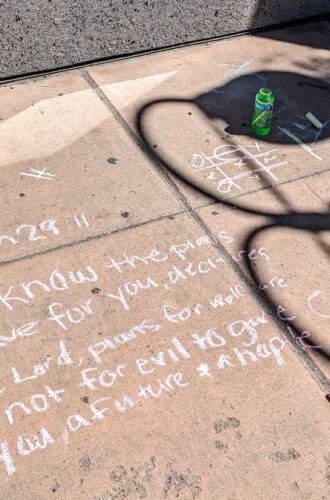 29 11
know the plans
ve for you, declares
Lord, plans for welfare
not for evil to gave
you, a future & a hope